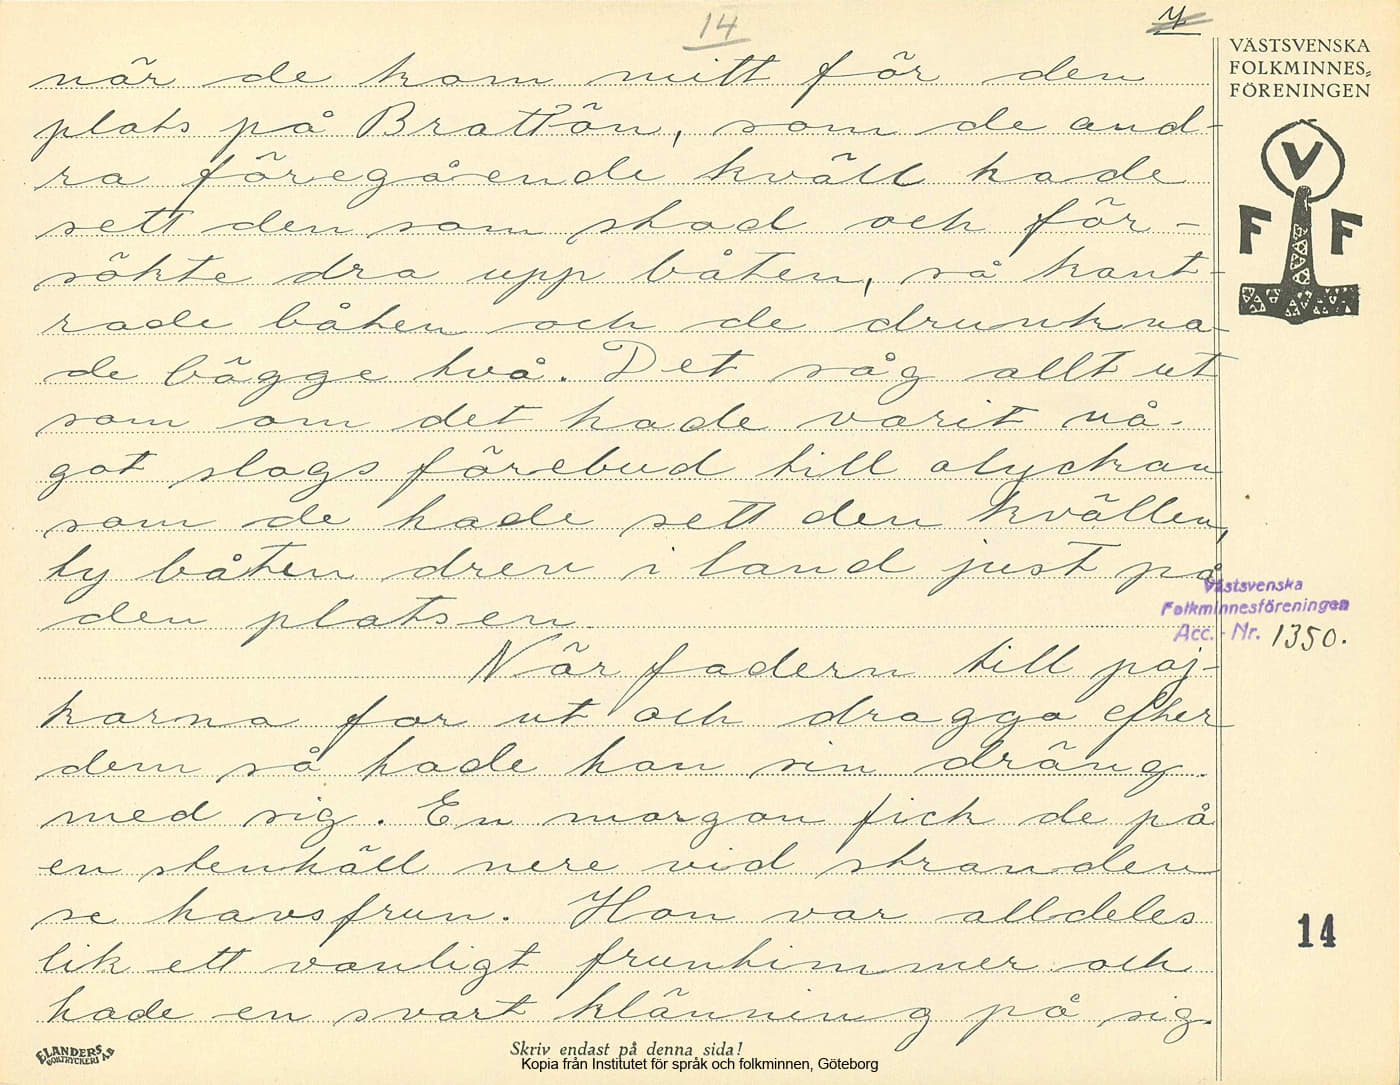 14
VÄSTSVENSKA
FOLKMINNES-
FÖRENINGEN
V
F F
när de kom mitt för den
plats på Brattön, som de and-
ra föregående kväll hade
sett den som stod och för-
sökte dra upp båten, så kant-
rade båten och de drunkna-
de bägge två. Det såg allt ut
som om det hade varit nå-
got slags förebud till olyckan
som de hade sett den kvällen,
ty båten drev i land just på
den platsen.
Västsvenska
Folkminnesföreningen
Acc.-Nr. 1350.
När fadern till poj-
karna for ut och dragga efter
dem så hade han sin dräng
med sig. En morgon fick de på
en stenhäll nere vid stranden
se havsfrun. Hon var alldeles
lik ett vanligt fruntimmer och
hade en svart klänning på sig.
14
ELANDERS
BOKTRYCKERI AB
Skriv endast på denna sida!
Kopia från Institutet för språk och folkminnen, Göteborg